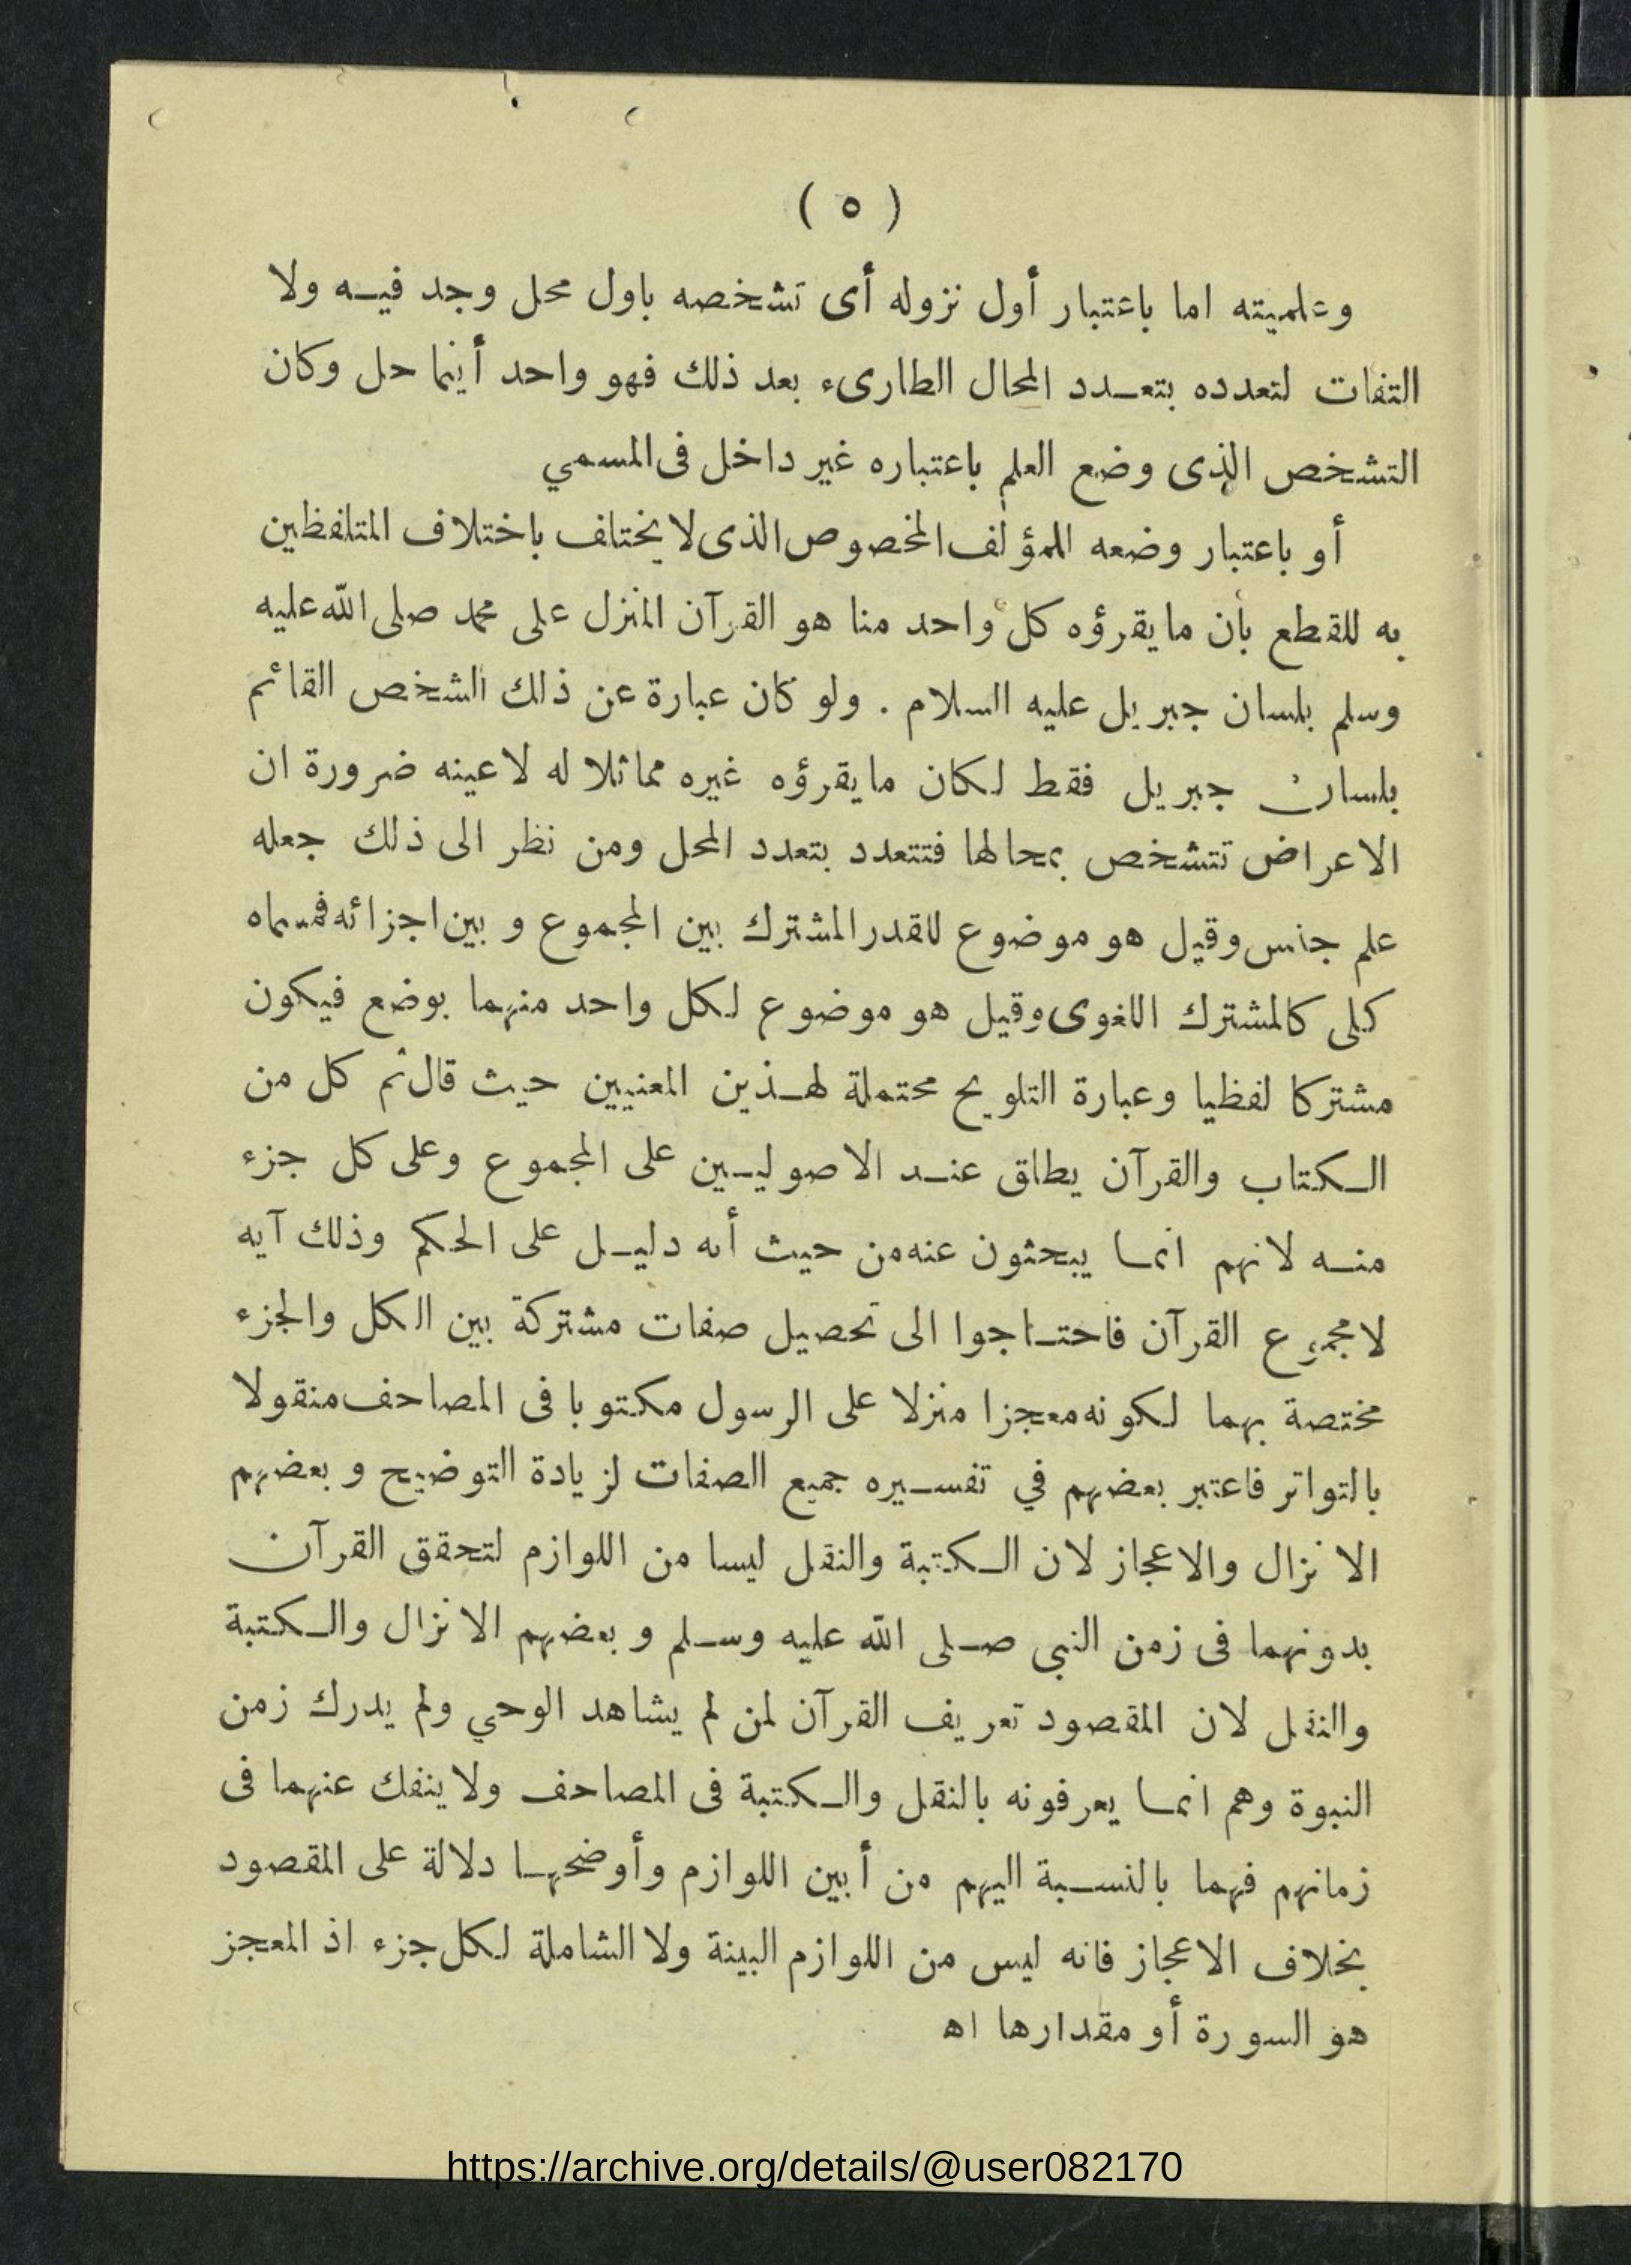 ( ٥ )
وعلميته اما باعتبار أول نزوله أى تشخصه باول محل وجد فيه ولا
التفات لتعدده بتعدد المحال الطارىء بعد ذلك فهو واحد أينما حل وكان
التشخص الذى وضع العلم باعتباره غير داخل فى المسمي
أو باعتبار وضعه للمؤلف المخصوص الذى لا يختلف باختلاف المتلفظين
به للقطع بأن ما يقرؤه كل واحد منا هو القرآن المنزل على محمد صلى الله عليه
وسلم بلسان جبريل عليه السلام . ولو كان عبارة عن ذلك الشخص القائم
بلسان جبريل فقط لكان ما يقرؤه غيره مماثلا له لا عينه ضرورة ان
الاعراض تتشخص بمحالها فتتعدد بتعدد المحل ومن نظر الى ذلك جعله
علم جنس وقيل هو موضوع للقدر المشترك بين المجموع وبين اجزائه فمسماه
كلى كالمشترك اللغوى وقيل هو موضوع لكل واحد منهما بوضع فيكون
مشتركا لفظيا وعبارة التلويح محتملة لهذين المعنيين حيث قال ثم كل من
الكتاب والقرآن يطلق عند الاصوليين على المجموع وعلى كل جزء
منه لانهم انما يبحثون عنه من حيث أنه دليل على الحكم وذلك آيه
لا مجموع القرآن فاحتاجوا الى تحصيل صفات مشتركة بين الكل والجزء
مختصة بهما لكونه معجزا منزلا على الرسول مكتوبا فى المصاحف منقولا
بالتواتر فاعتبر بعضهم في تفسيره جميع الصفات لزيادة التوضيح وبعضهم
الانزال والاعجاز لان الكتبة والنقل ليسا من اللوازم لتحقق القرآن
بدونهما فى زمن النبى صلى الله عليه وسلم وبعضهم الانزال والكتبة
والنقل لان المقصود تعريف القرآن لمن لم يشاهد الوحي ولم يدرك زمن
النبوة وهم انما يعرفونه بالنقل والكتبة فى المصاحف ولا ينفك عنهما فى
زمانهم فهما بالنسبة اليهم من أبين اللوازم وأوضحها دلالة على المقصود
بخلاف الاعجاز فانه ليس من اللوازم البينة ولا الشاملة لكل جزء اذ المعجز
هو السورة أو مقدارها اه
https://archive.org/details/@user082170